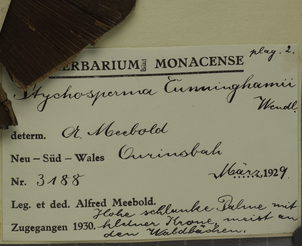 HERBARIUM MONACENSE
plag. 2.
Ptychosperma Cunninghamii
Wendl.
determ. A. Meebold
Neu-Süd-Wales Ourimbah
März, 1929.
Nr. 3188
Leg. et ded. Alfred Meebold.
Hohe schlanke Palme mit
Zugegangen 1930. kleiner Krone, meist an
den Waldbächen.